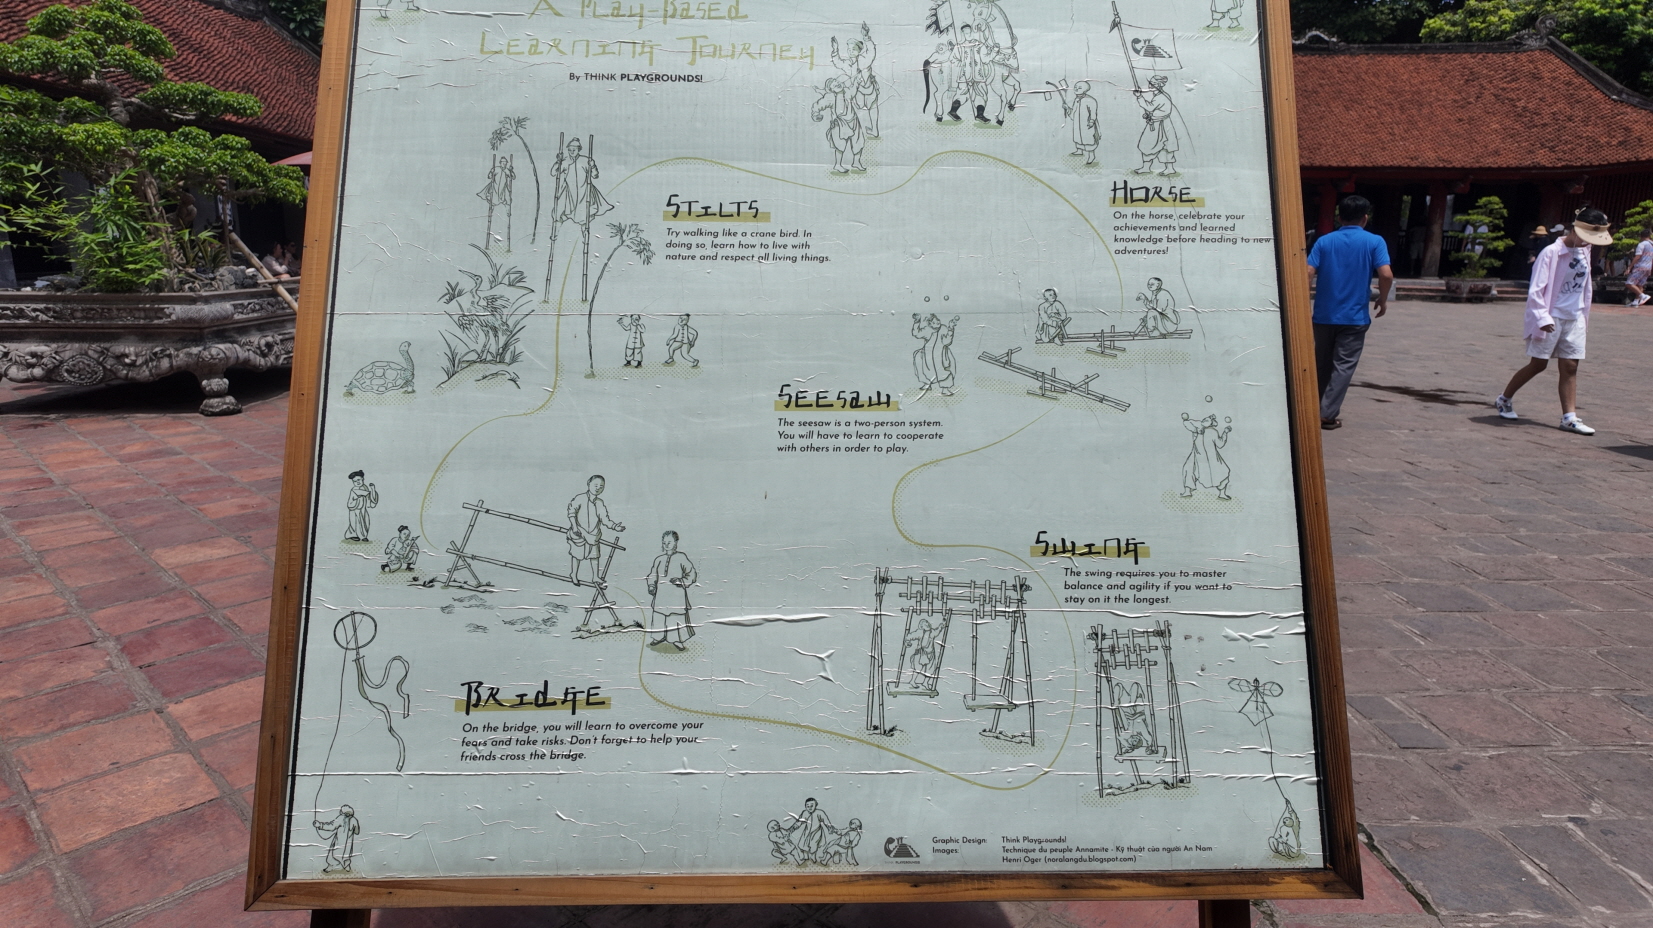 A Play-Based
Learning Journey
By THINK PLAYGROUNDS!
STILTS
Try walking like a crane bird. In
doing so, learn how to live with
nature and respect all living things.
HORSE
On the horse, celebrate your
achievements and learned
knowledge before heading to new
adventures!
SEESAW
The seesaw is a two-person system.
You will have to learn to cooperate
with others in order to play.
SWING
The swing requires you to master
balance and agility if you want to
stay on it the longest.
BRIDGE
On the bridge, you will learn to overcome your
fears and take risks. Don't forget to help your
friends cross the bridge.
Graphic Design: Think Playgrounds!
Images: Technique du peuple Annamite - Kỹ thuật của người An Nam
Henri Oger (noralangdu.blogspot.com)